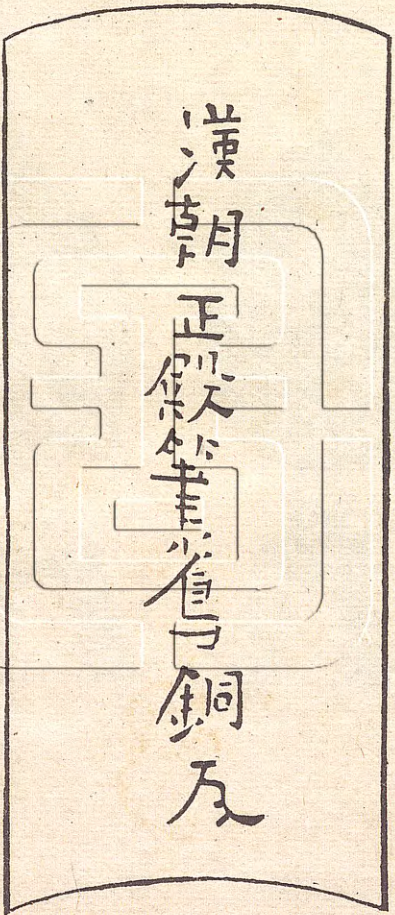 漢朝正殿筆銅瓦